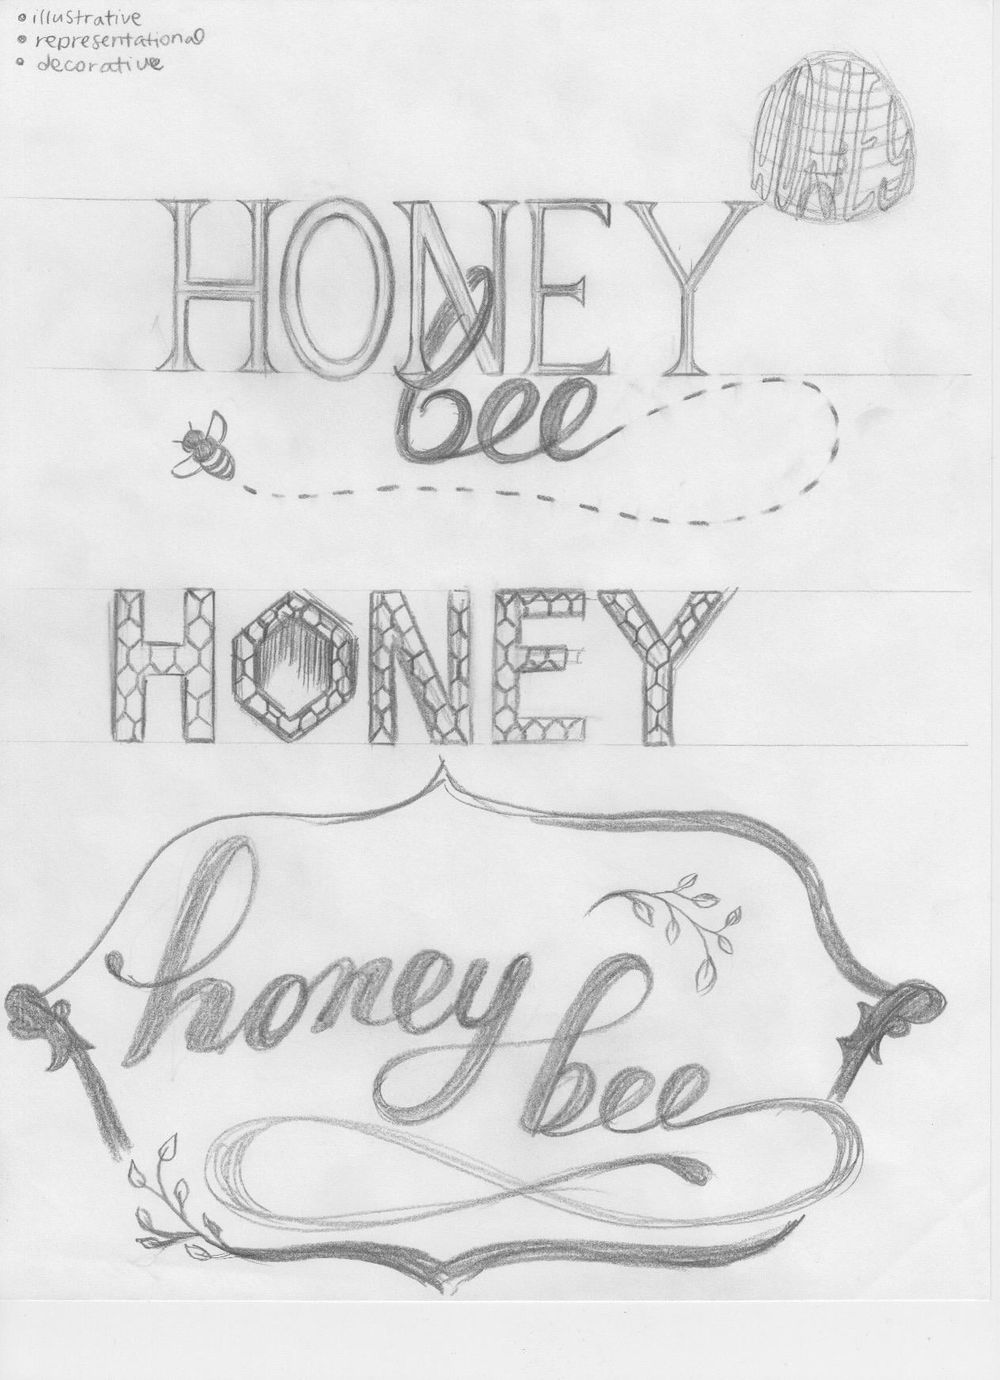 • illustrative
• representational
• decorative
HONEY
bee
HONEY
honey
bee